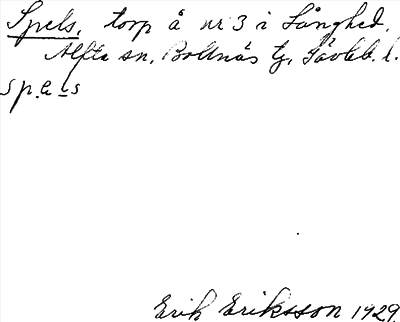 Spels, torp å nr 3 i Långhed,
Alfta sn. Bollnäs tg. Gävleb. l.
spe̱ls
Erik Eriksson 1929.